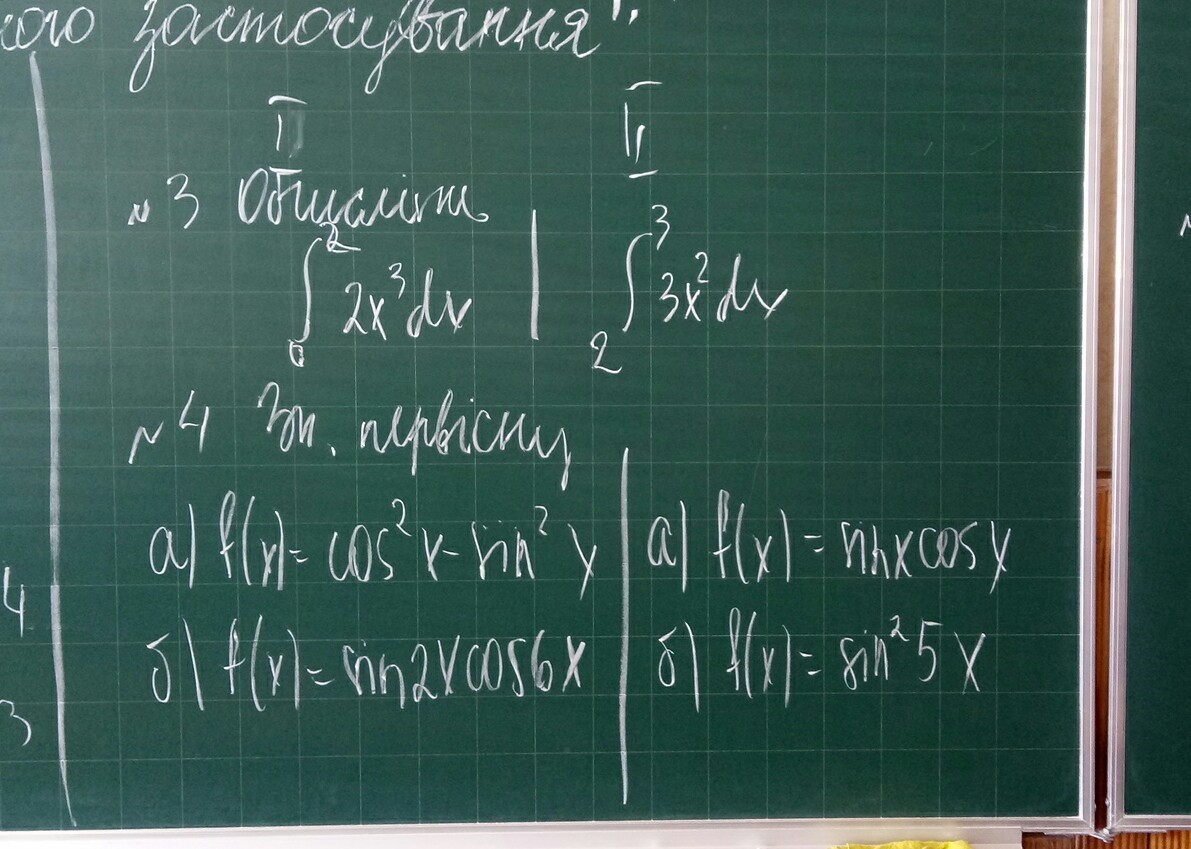 застосування".
I II
№3 Обчисліть
∫₀² 2x³dx | ∫₂³ 3x²dx
№4 Зн. первісну
а) f(x) = cos²x - sin²x | а) f(x) = sinxcosx
б) f(x) = sin2xcos6x | б) f(x) = sin²5x
4
3